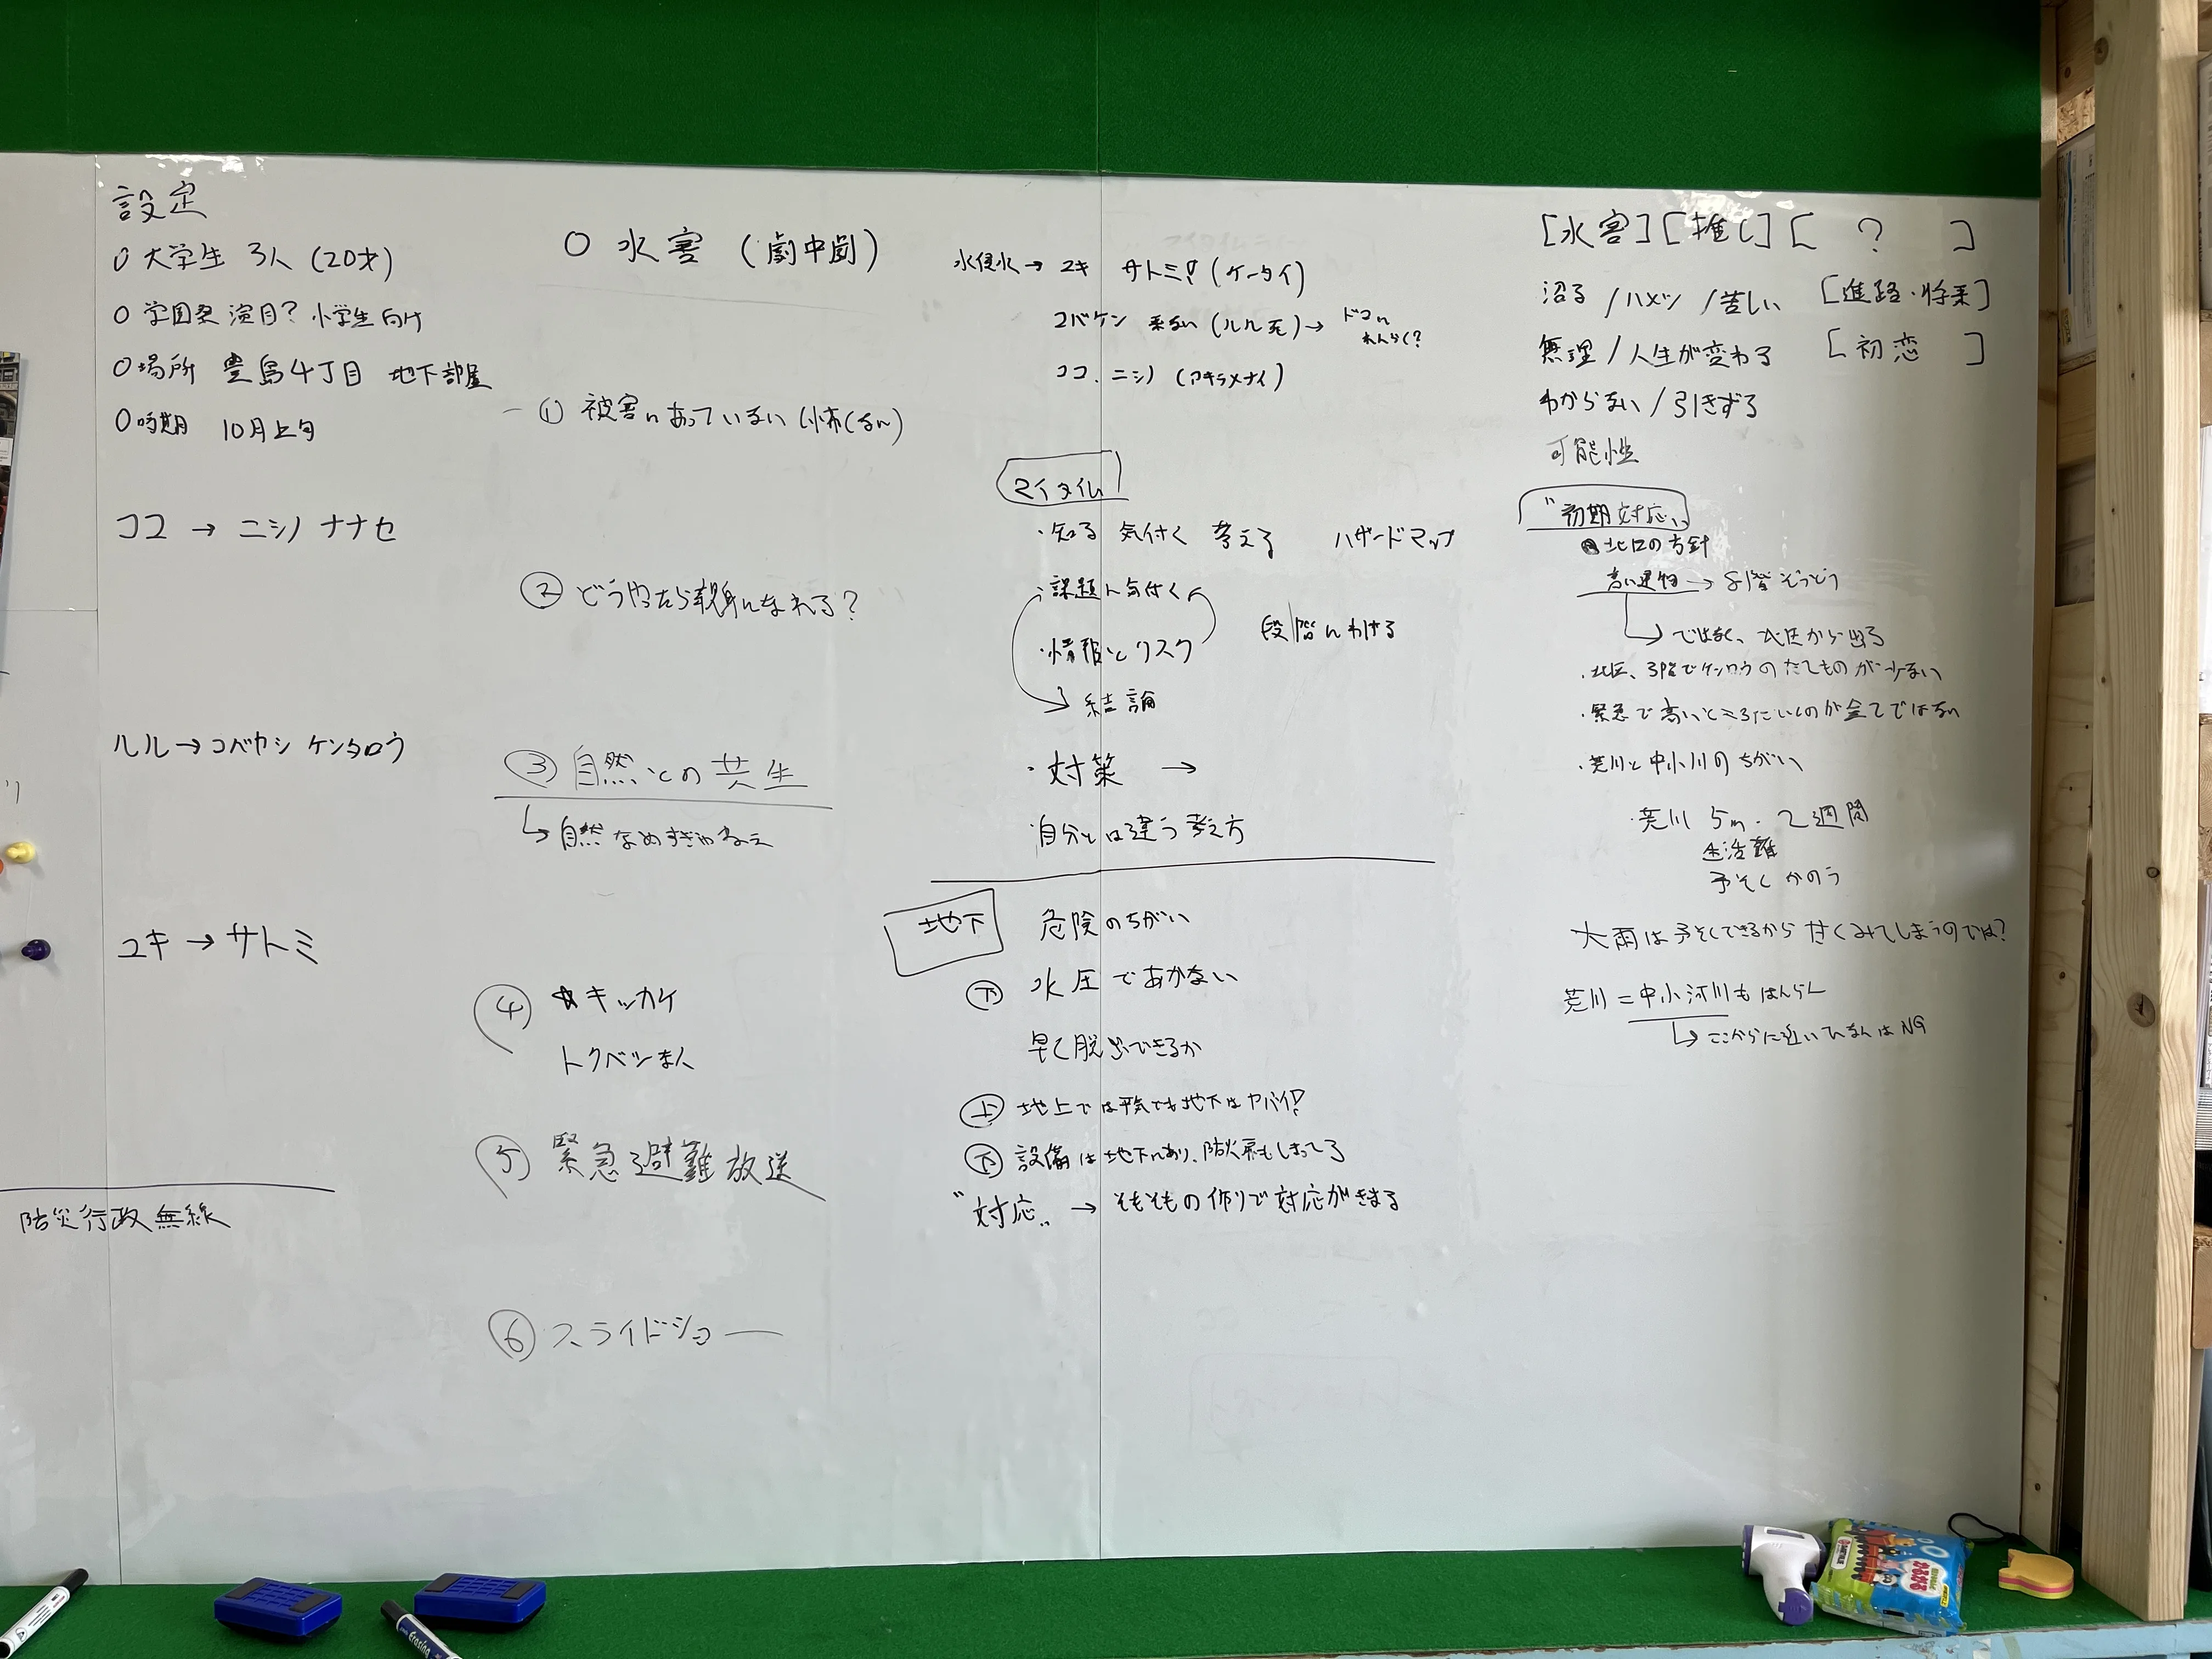 設定
○大学生 3人 (20才)
○学園祭 演目? 小学生向け
○場所 豊島4丁目 地下部屋
○時期 10月上旬
ココ → ニシノ ナナセ
ルル → コバヤシ ケンタロウ
ユキ → サトミ
防災行政無線
○ 水害 (劇中劇)
① 被害にあっていない (怖くない)
② どうやったら親身になれる?
③ 自然との共生
↳ 自然なめすぎじゃねえ
④ ☆キッカケ
トクベツ本人
⑤ 緊急避難放送
⑥ スライドショー
→ ユキ サトミ! (ケータイ)
コバケン 来ない (ルル 死) → ドコに れんらく?
ココ、ニシノ (アキラメナイ)
マイタイム
・知る 気付く 考える ハザードマップ
・課題に気付く
・情報とリスク 段階にわける
結論
・対策 →
・自分とは違う考え方
地下 危険のちがい
下 水圧であかない
早く脱出できるか
上 地上では平気でも地下はヤバイ!
下 設備は地下にあり、防火扉もしまってる
"対応" → そもそもの作りで対応がきまる
[水害] [推し] [ ? ]
沼る / ハメツ / 苦しい [進路・将来]
無理 / 人生が変わる [初恋 ]
わからない / 引きずる
可能性
"初期対応"
北区の方針
高い建物 →
↳ ではなく、北区から出る
・北区、3階でケンロウのたてものが少ない
・緊急で高いところだいくのが全てではない
・荒川と中小川のちがい
・荒川 5m・2週間
生活難
予そくかのう
大雨は予そくできるから甘くみてしまうのでは?
荒川 = 中小河川もはんらん
↳ ここからに近いひなんはNG
Erasing